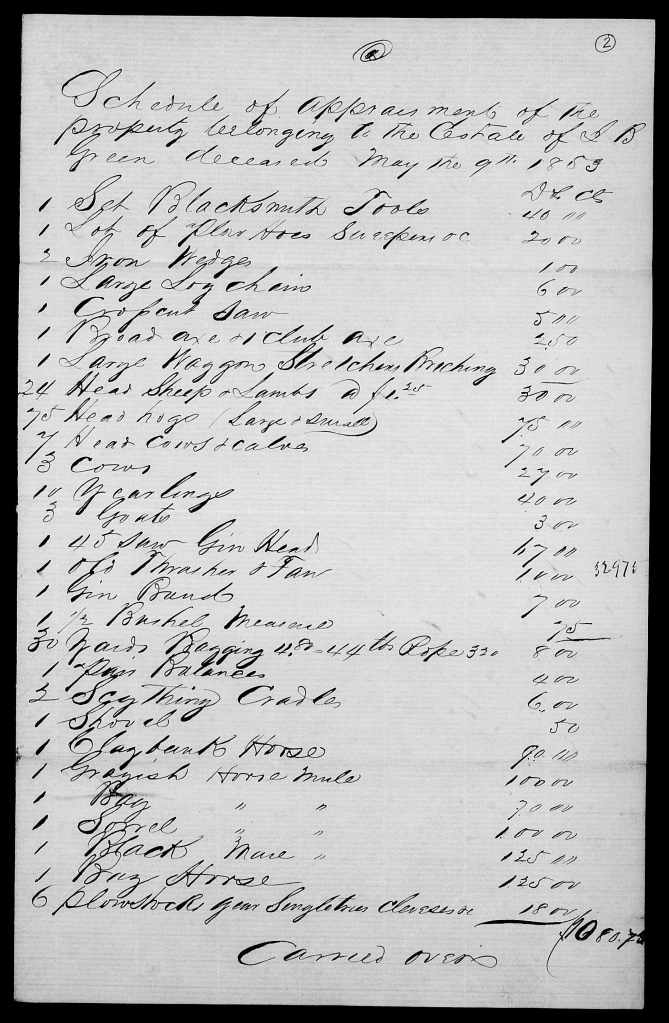 2
a
Schedule of appraisment of the
property belonging to the Estate of S B
Green deceased May the 9th 1853
D ls Cts
1 Set Blacksmith Tools 40 00
1 Lot of Plow Hoes Sweepers &c 20 00
2 Iron Wedges 1 00
1 Large Log chain 6 00
1 Cropcut Saw 5 00
1 Broad axe & 1 club axe 2.50
1 Large Waggon Stretchers Briching 30 00
24 Head Sheep & Lambs @ $1.25 30 00
75 Head hogs (Large & Small) 75 00
7 Head Cows & calves 70 00
3 Cows 27 00
10 Yearlings 40 00
3 Goats 3 00
1 45 Saw Gin Head 17 00
1 Old Thrasher & Fan 10 00 32975
1 Gin Band 7 00
1 1/2 Bushel Measure 75
30 Yards Bagging 4.80 = 44 lbs Rope 320 8 00
1 Pair Balances 4 00
2 Scything Cradles 6.00
1 Shovel 50
1 Claybank Horse 90 00
1 Grayish Horse Mule 100 00
1 Bay " " 70 00
1 Sorrel " " 100 00
1 Black Mare " 125 00
1 Bay Horse 125 00
6 Plowstocks gear Singletrees clevises &c 18 00
1080.75
Carried over